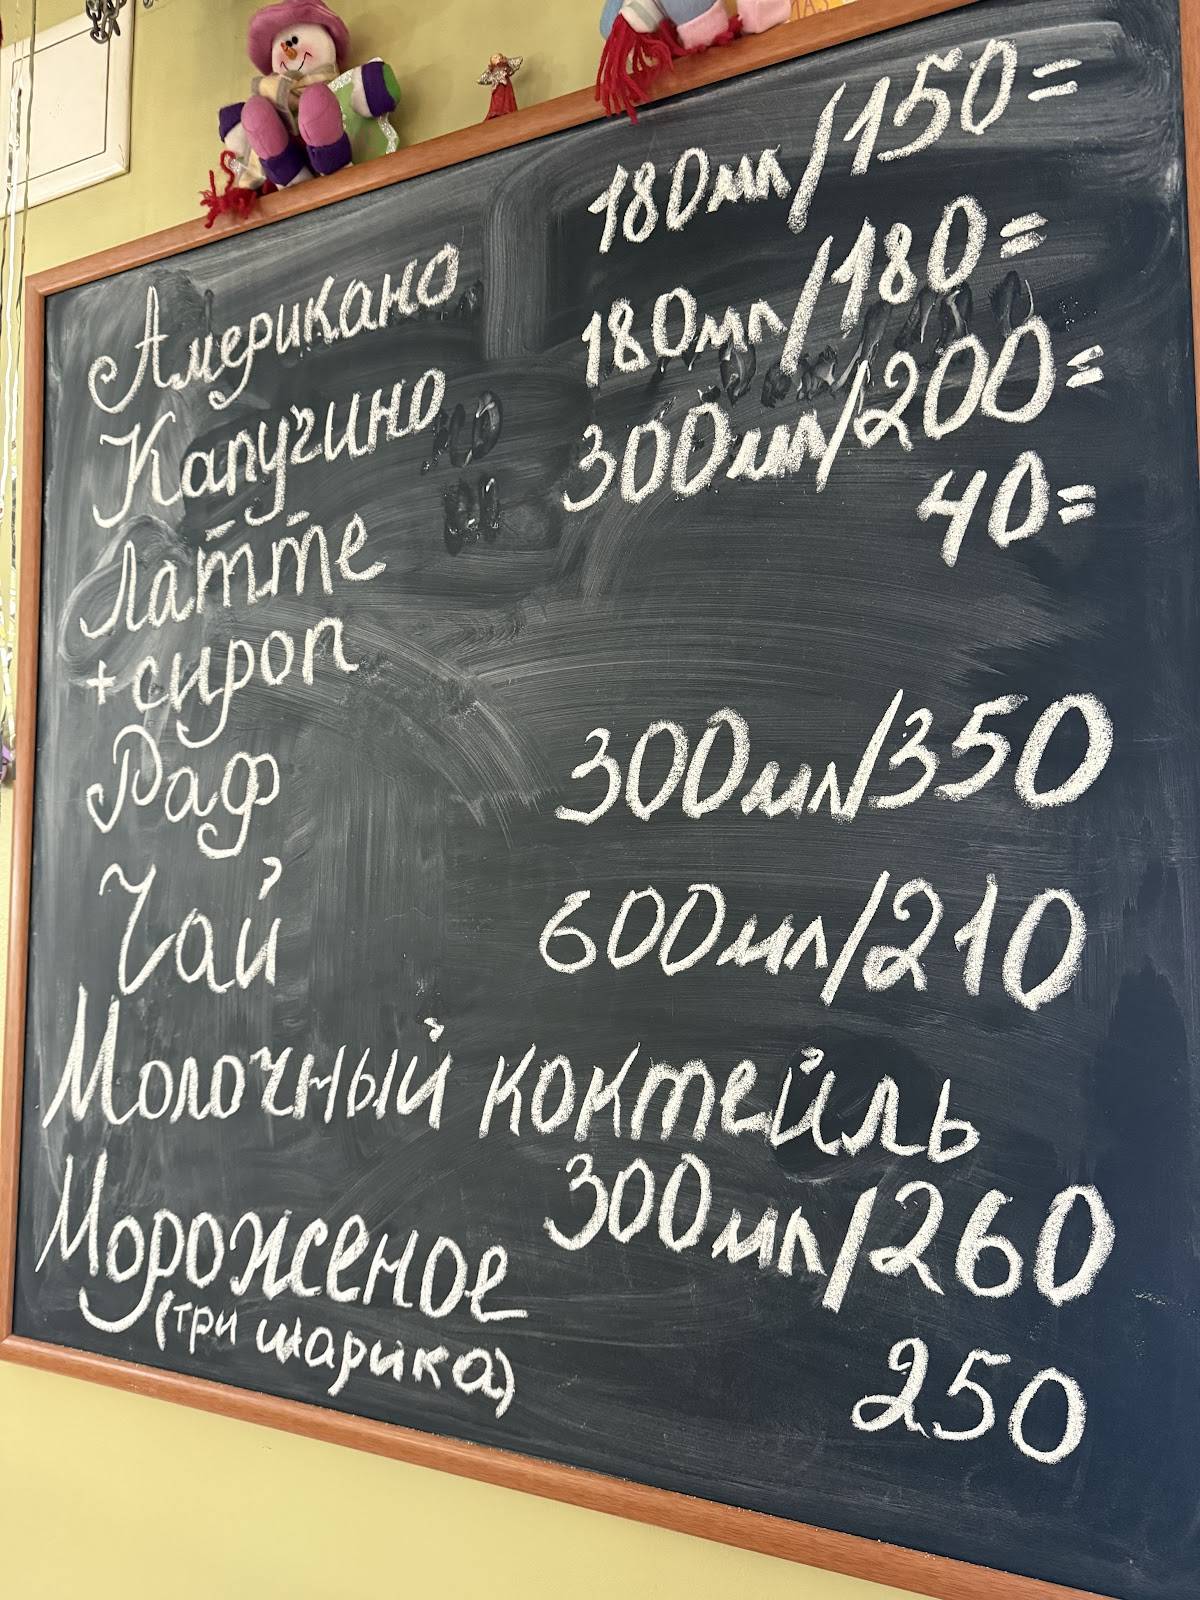 Американо 180мл/150=
Капучино 180мл/180=
Латте 300мл/200=
+сироп 40=
Раф 300мл/350
Чай 600мл/210
Молочный коктейль
300мл/260
Мороженое
(три шарика) 250